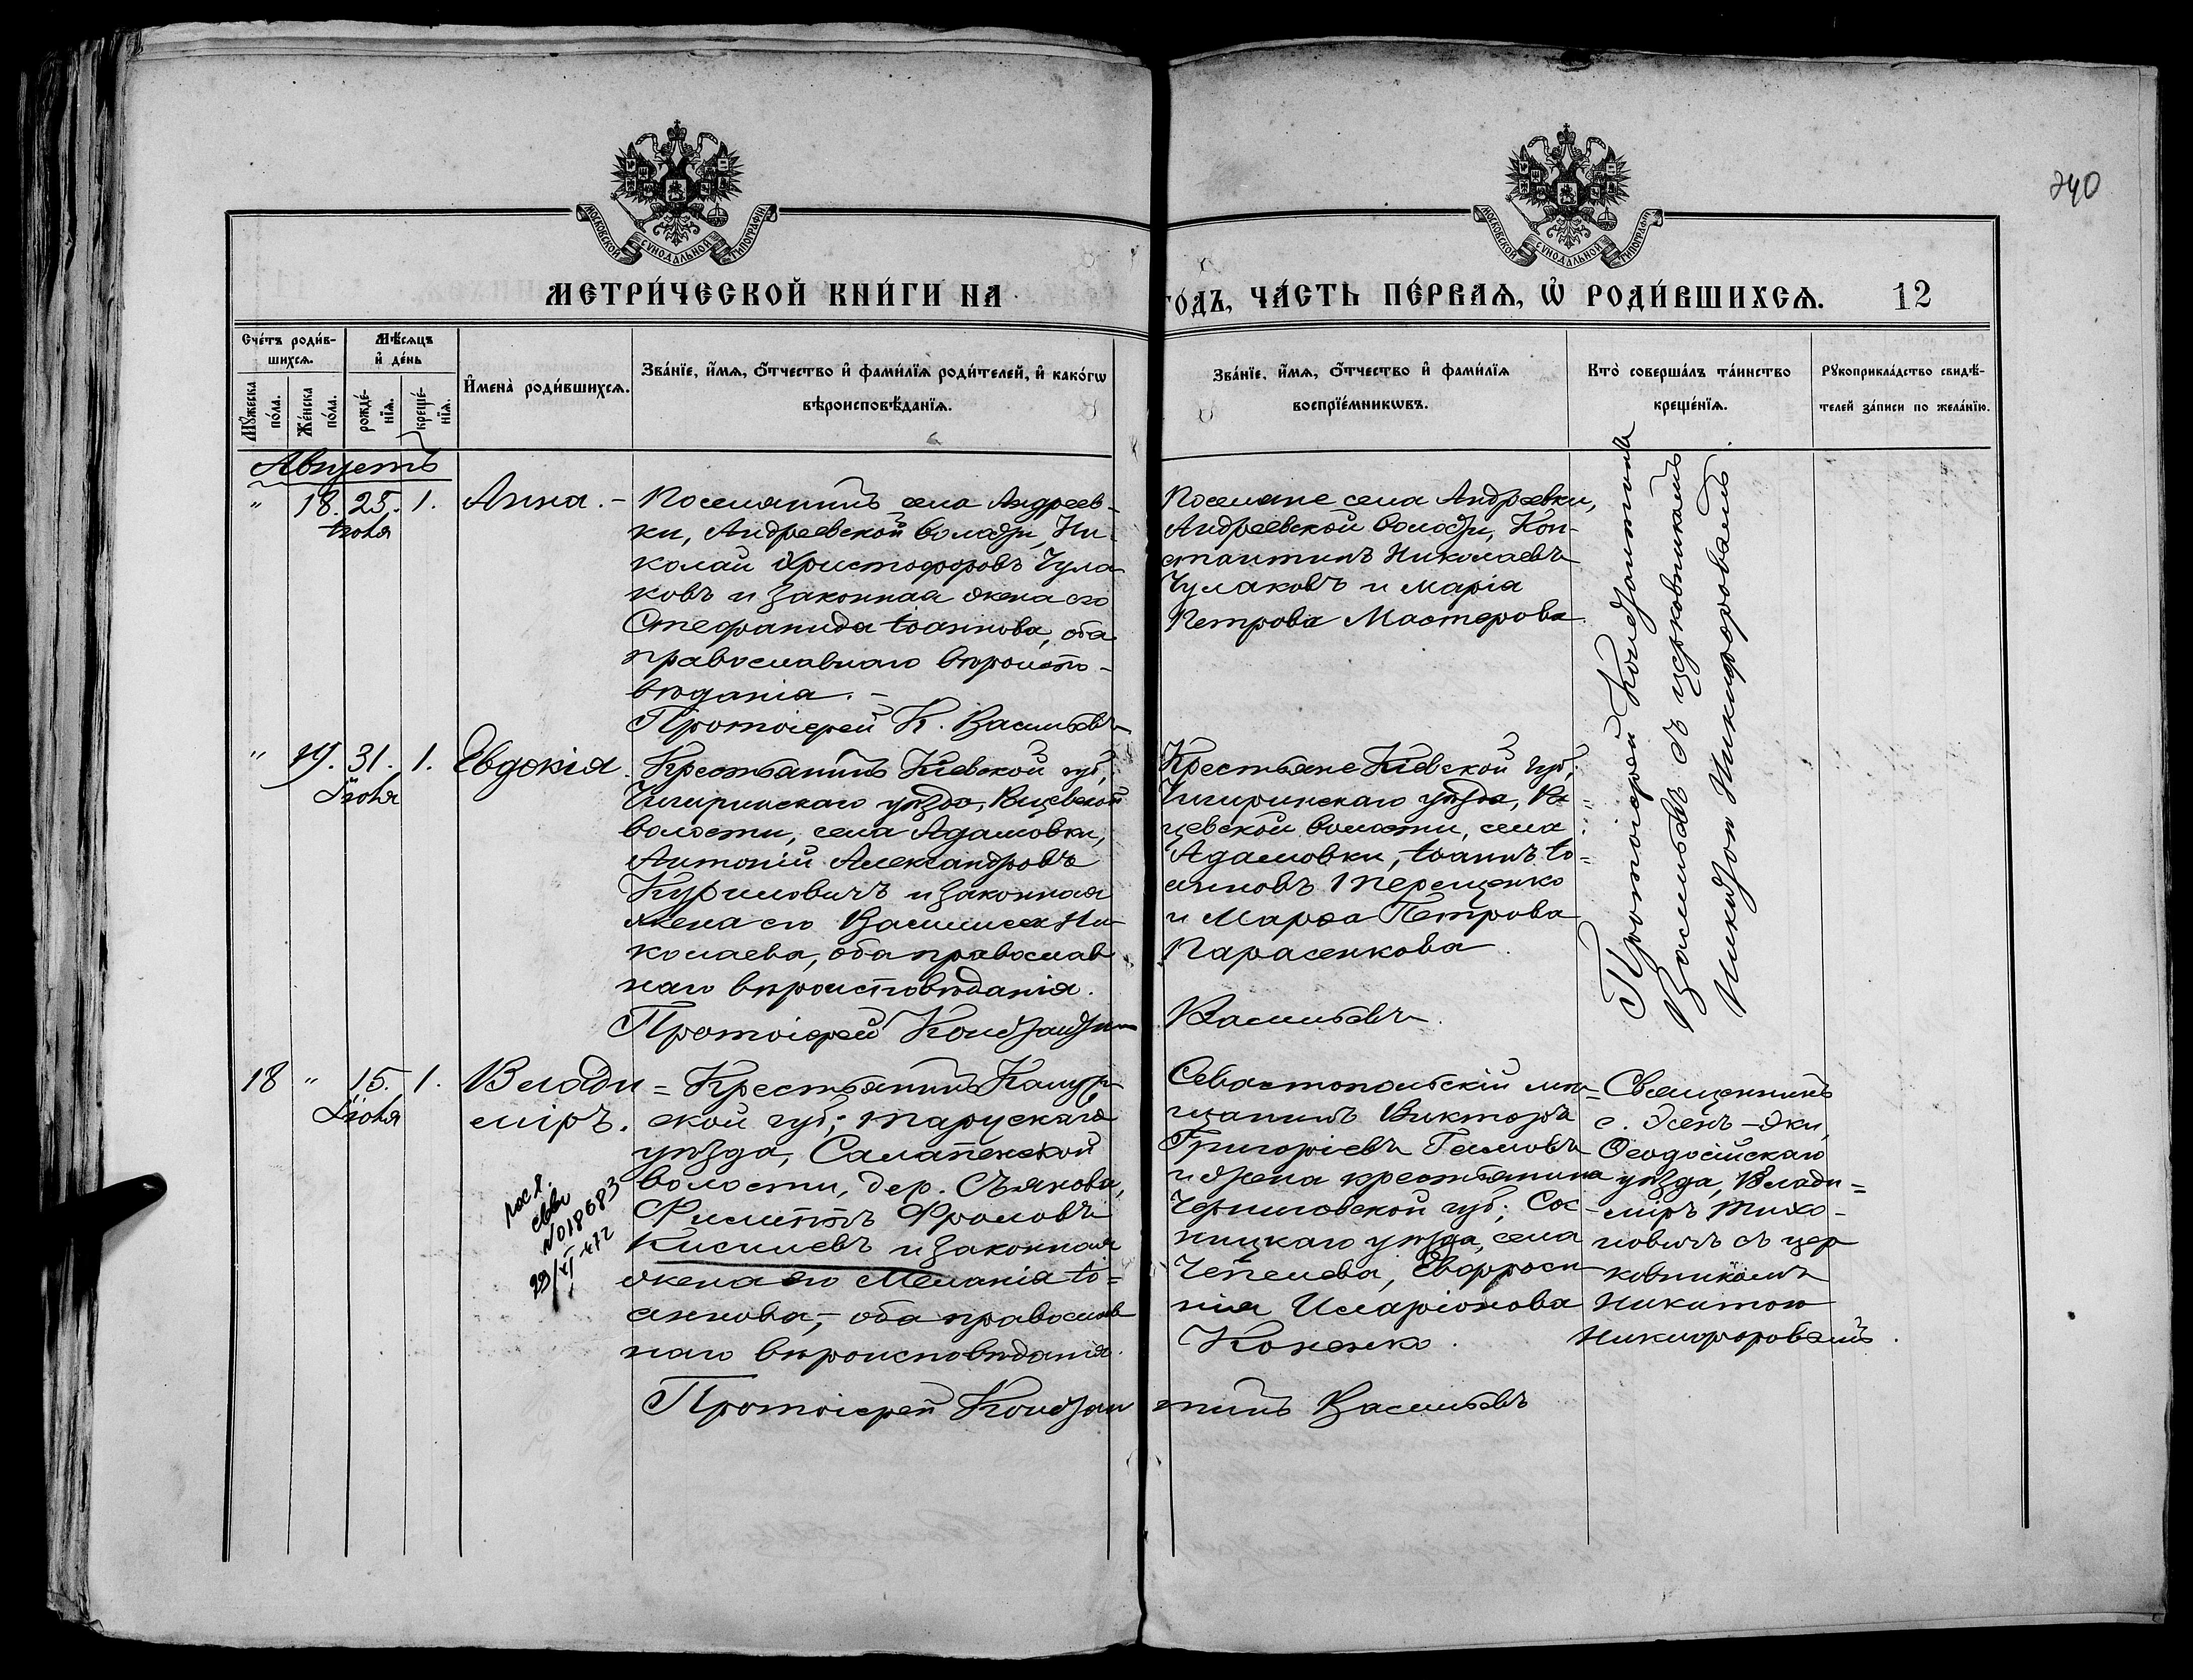 240
МОСКОВСКОЙ СѴНОДАЛЬНОЙ ТИПОГРАФІИ
МОСКОВСКОЙ СѴНОДАЛЬНОЙ ТИПОГРАФІИ
МЕТРИ́ЧЕСКОЙ КНИ́ГИ НА
ГО́ДЪ, ЧА́СТЬ ПЕ́РВАѦ, Ѡ҆ РОДИ́ВШИХСѦ. 12
Сче́тъ роди́в-
шихсѧ.
Мꙋ́жеска
по́ла.
Же́нска
по́ла.
Мѣ́сѧцъ
и҆ де́нь
рожде́-
нїѧ.
креще́-
нїѧ.
И҆мена̀ роди́вшихсѧ.
Зва́нїе, и҆́мѧ, ѻ҆́тчество и҆ фами́лїѧ роди́телей, и҆ како́гѡ
вѣроисповѣ́данїѧ.
Зва́нїе, и҆́мѧ, ѻ҆́тчество и҆ фами́лїѧ
воспрїе́мникѡвъ.
Кто̀ соверша́лъ та́инство
креще́нїѧ.
Рꙋкоприкла́дство свидѣ́-
телей за́писи по жела́нїю.
Августъ
" 18. 25. 1. Анна. -
Іюля
Поселянинъ села Андреев-
ки, Андреевской волости, Ни-
колай Христофоровъ Чула
ковъ и законная жена его
Стефанида Іоаннова, оба
православнаго вѣроиспо-
вѣданія. -
Протоіерей К. Васильевъ
Поселяне села Андреевки,
Андреевской волости, Кон-
стантинъ Николаевъ
Чулаковъ и Марія
Петрова Мастерова.
Протоіерей Константинъ
Васильевъ съ церковникомъ
Никифоровымъ.
" 19. 31. 1. Евдокія.
Іюля
Крестьянинъ Кіевской губ.,
Чигиринскаго уѣзда,
волости, села Адамовки,
Антоній Александровъ
Куриловичъ и законная
жена его Василиса Ни-
колаева, оба православ
наго вѣроисповѣданія.
Протоіерей Константинъ
Крестьяне Кіевской губ.,
Чигиринскаго уѣзда,
цевской волости, села
Адамовки, Іоаннъ Іо=
анновъ Терещенко
и Марѳа Петрова
Парасенкова.
Васильевъ.
18 " 15. 1. Влади=
Іюля
міръ.
N018683
Крестьянинъ Калуж-
ской губ., Тарускаго
уѣзда, Салапенской
волости, дер. Съянова,
Филиппъ Фроловъ
Киселевъ и законная
жена его Меланія Іо=
аннова, - оба православ
наго вѣроисповѣданія.
Протоіерей Констан
Севастопольскій мѣ=
щанинъ Викторъ
Григоріевъ
и жена крестьянина
Черниговской губ., Сос-
ницкаго уѣзда, села
Чепелева, Евфроси
нія Иларіонова
тинъ Васильевъ
Священникъ
с. Эсень-Эки,
Ѳеодосійскаго
уѣзда, Влади=
міръ Тихо-
новичъ съ цер
ковникомъ
Никитою
Никифоровымъ.